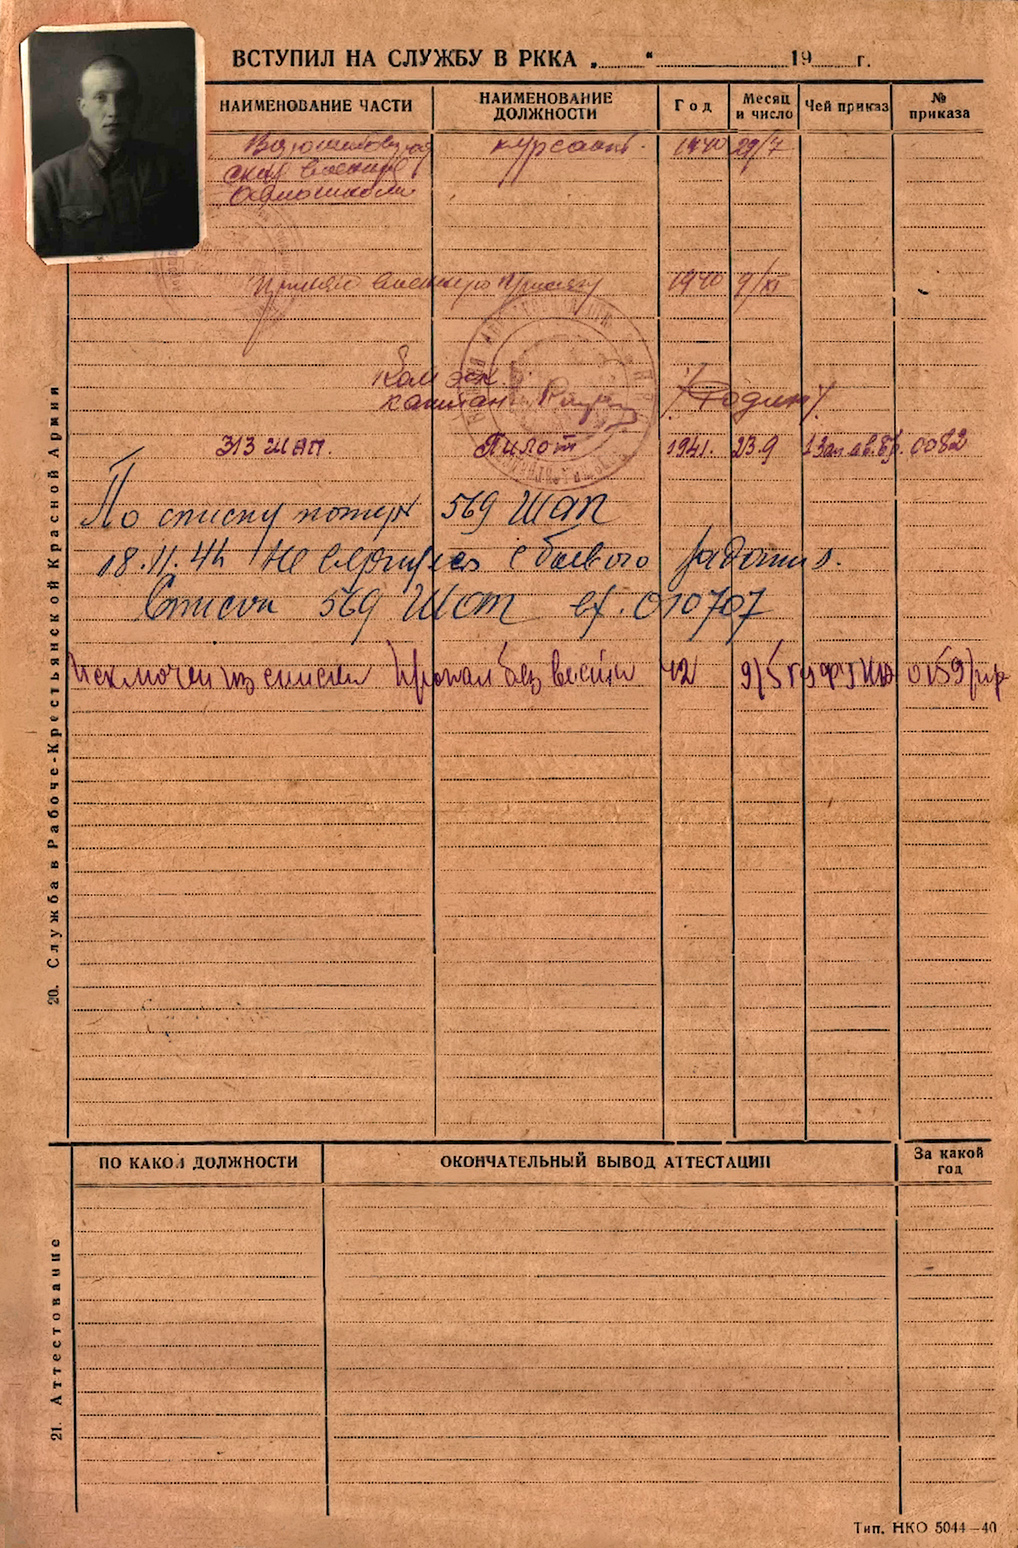 ВСТУПИЛ НА СЛУЖБУ В РККА „ “ 19 г.
НАИМЕНОВАНИЕ ЧАСТИ
НАИМЕНОВАНИЕ
ДОЛЖНОСТИ
Год
Месяц
и число
Чей приказ
№
приказа
курсант. 1940 29/7
ская военная
авиашкола
Принял военную присягу 1940 9/XI
Ком эск.
капитан /Родин/
313 ШАП. Пилот 1941. 23.9 1 Зап. ав. бр. 0082
По списку потерь 569 ШАП
18.11.41 не вернулся с боевого задания.
Список 569 ШАП вх. 010707
Исключен из списков Пропал без вести 42 9/5 ГУФУКА 0159/пр
20. Служба в Рабоче-Крестьянской Красной Армии
ПО КАКОЙ ДОЛЖНОСТИ
ОКОНЧАТЕЛЬНЫЙ ВЫВОД АТТЕСТАЦИИ
За какой
год
21. Аттестование
Тип. НКО 5044—40